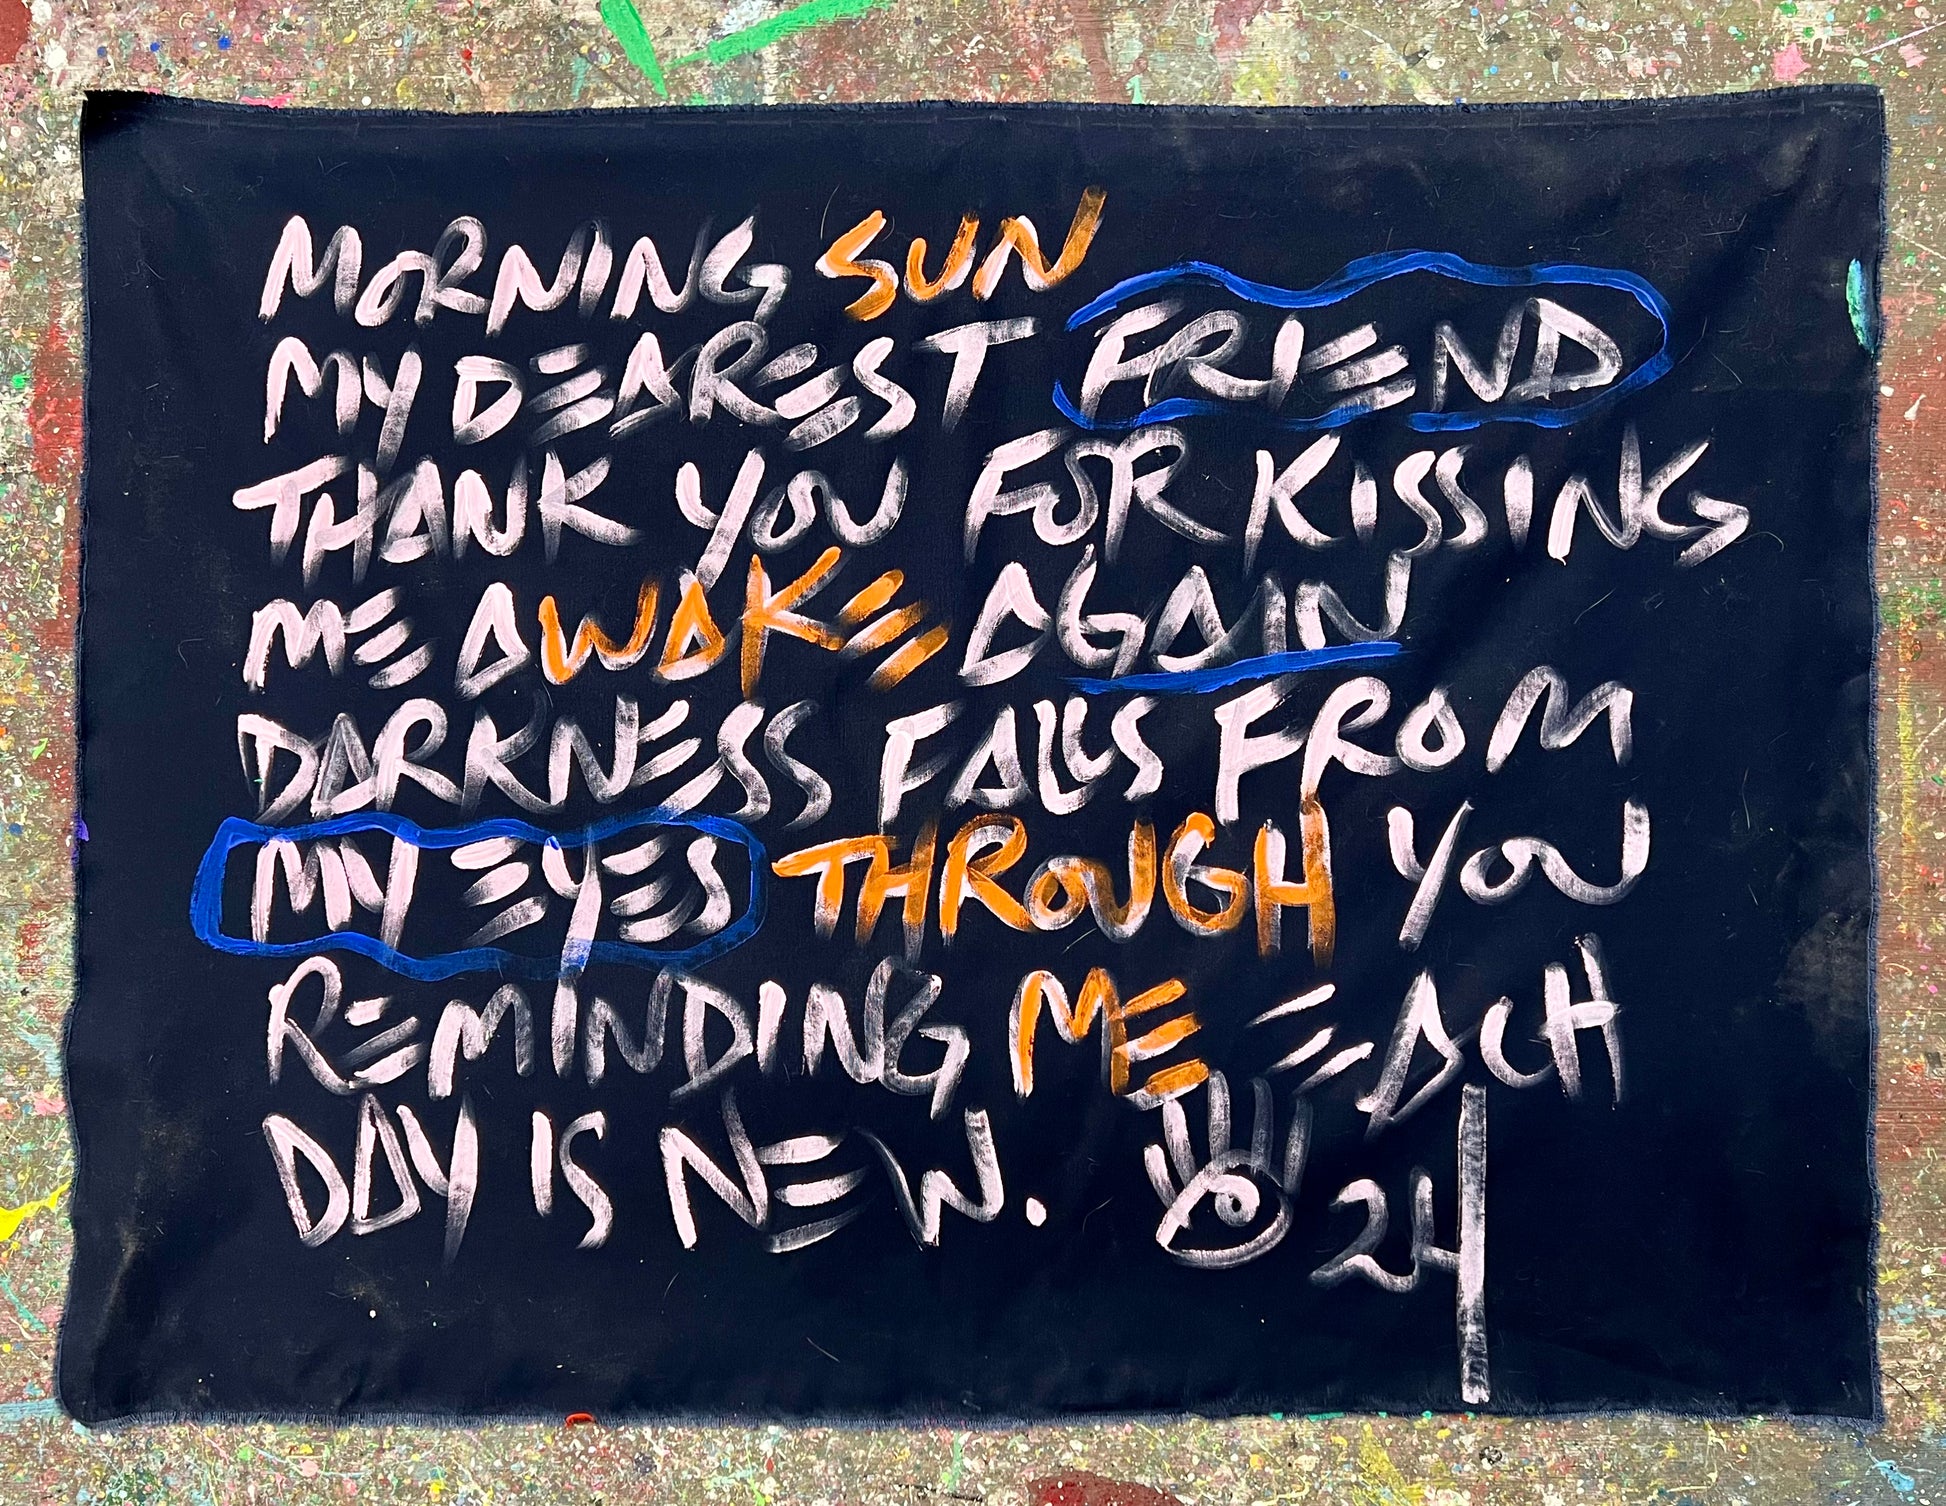 MORNING SUN
MY DEAREST FRIEND
THANK YOU FOR KISSING
ME AWAKE AGAIN
DARKNESS FALLS FROM
MY EYES THROUGH YOU
REMINDING ME EACH
DAY IS NEW.
24